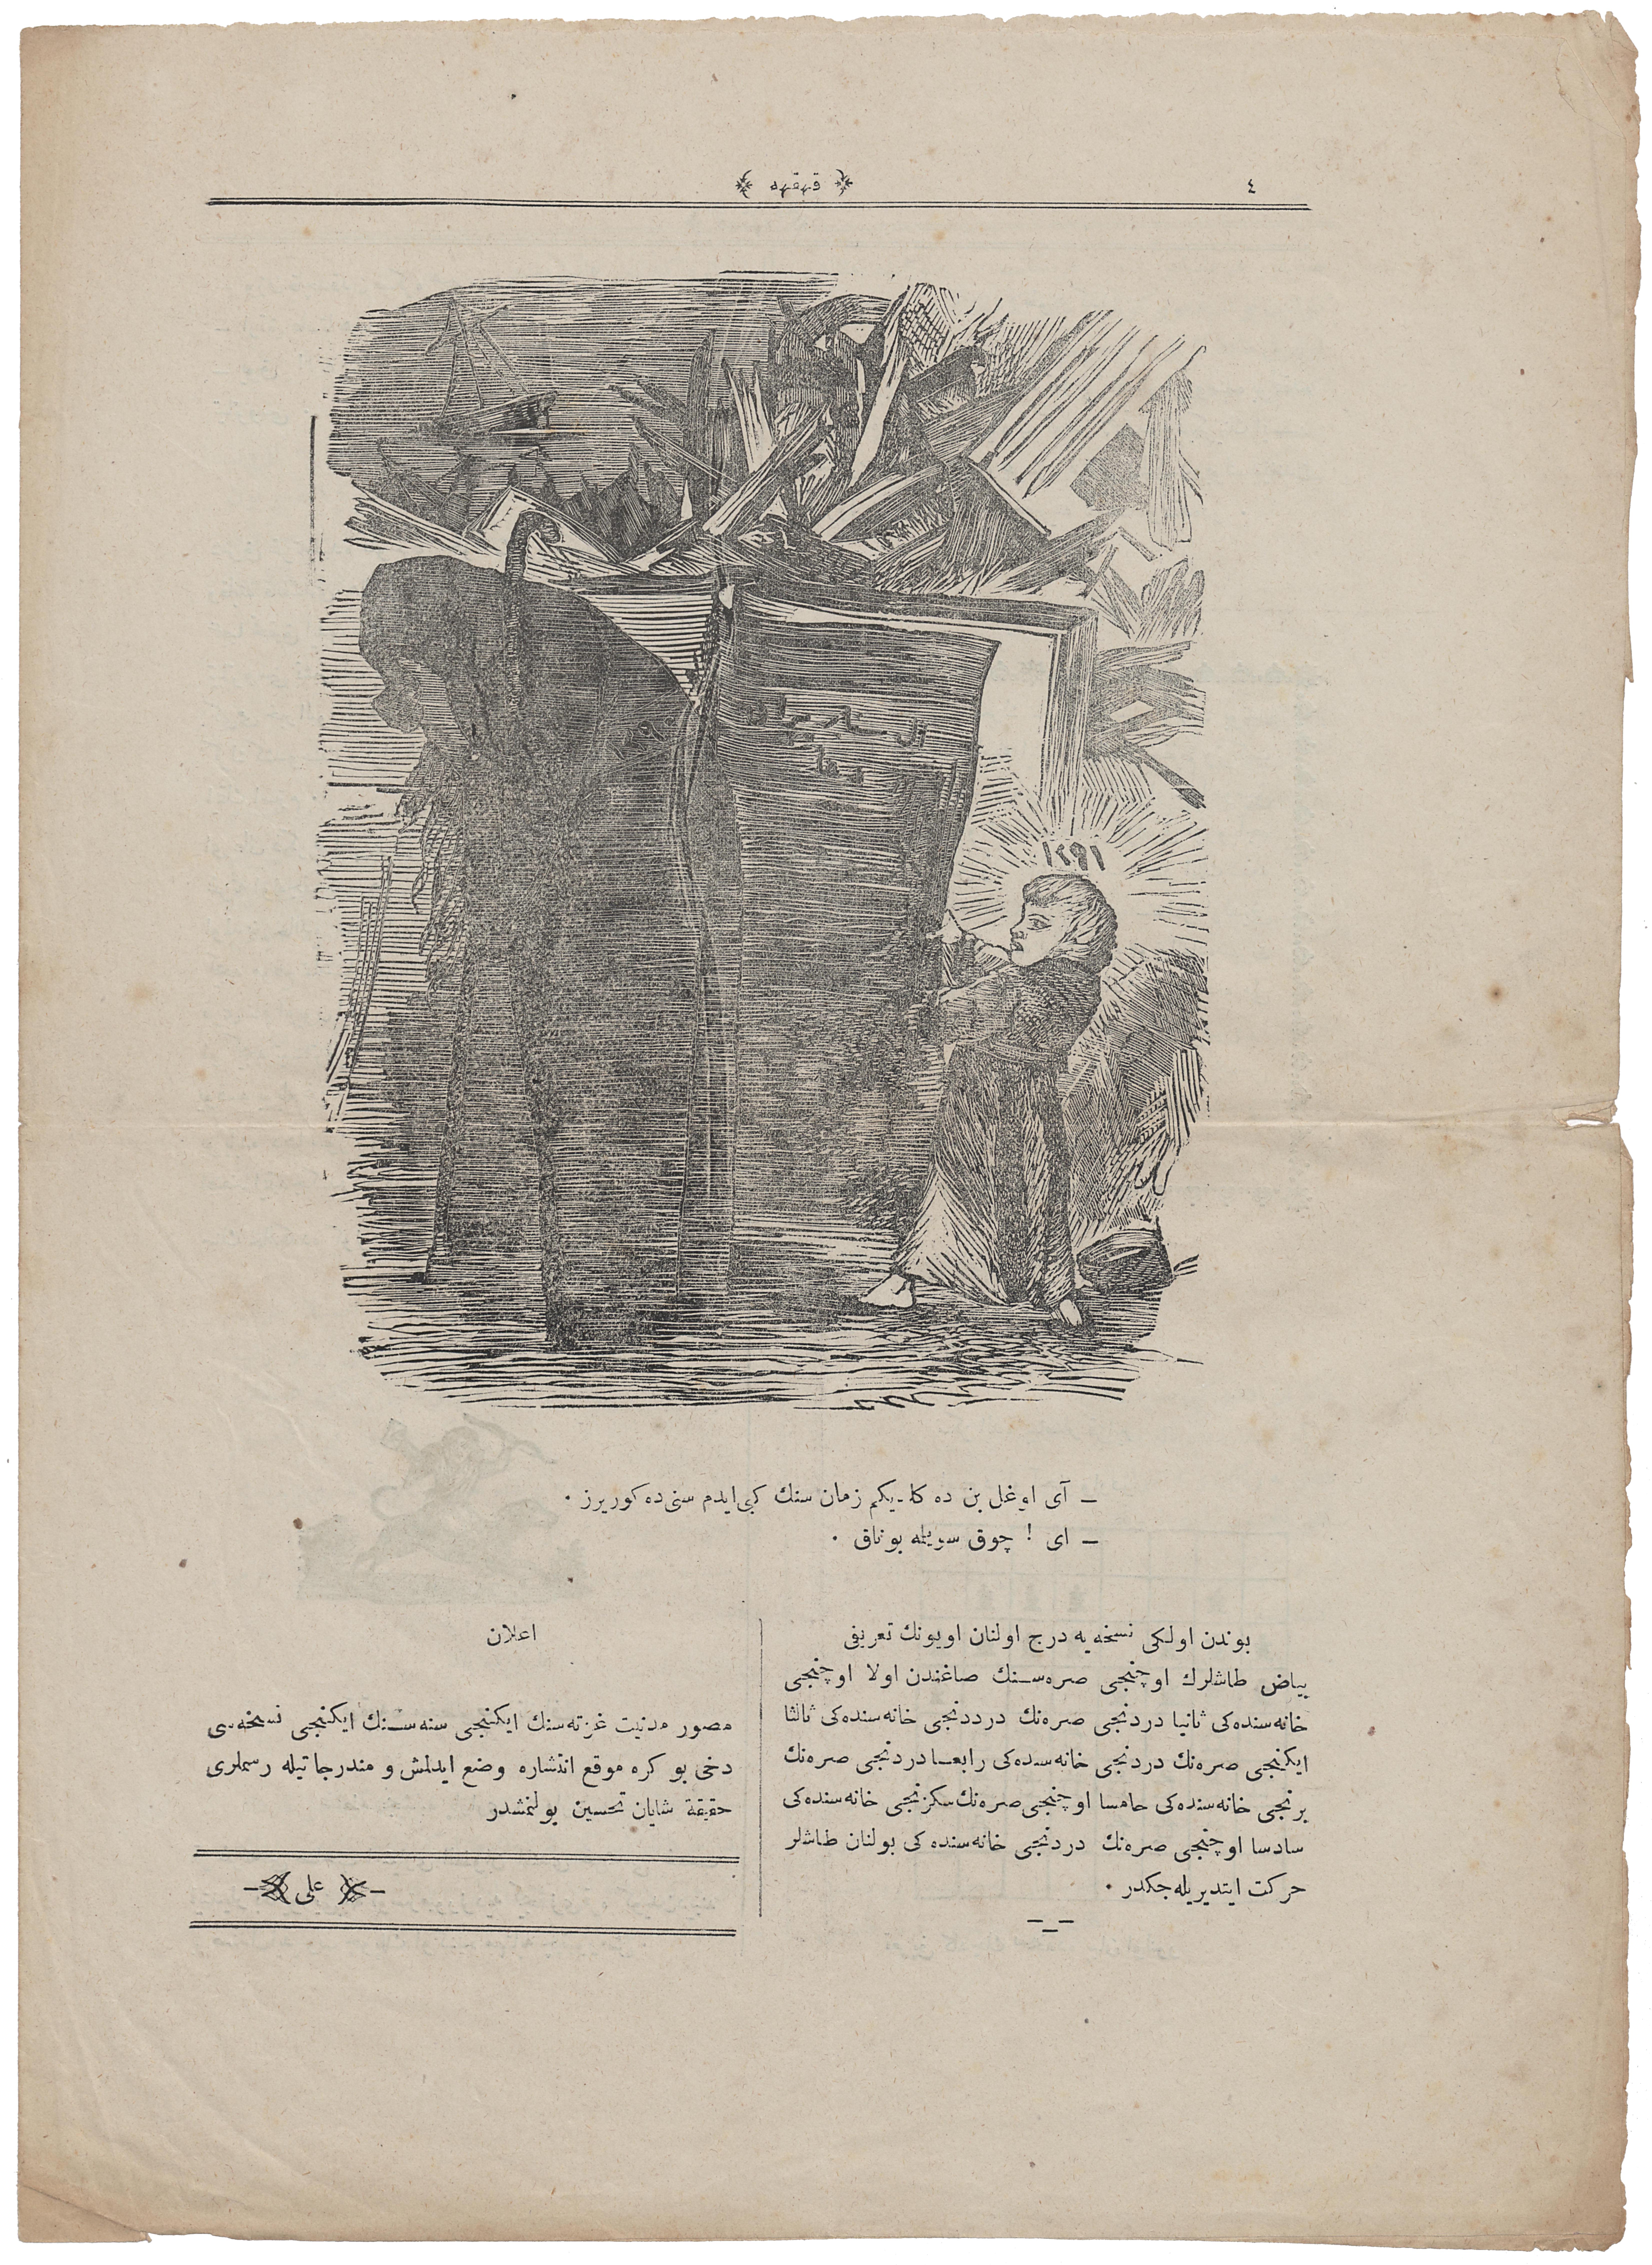 ٤
قهقهه
١٢٩٠
١٢٩١
— آی اوغل بن ده کلدیکم زمان سنك کبی ایدم سنی ده کوریرز .
— ای ! چوق سویله بوناق .
بوندن اولکی نسخه یه درج اولنان اویونك تعریفی
بیاض طاشلرك اوچنجی صره سنك صاغندن اولا اوچنجی
خانه سنده کی ثانیا دردنجی صره نك درددنجی خانه سنده کی ثالثا
ایکنجی صره نك دردنجی خانه سنده کی رابعا دردنجی صره نك
برنجی خانه سنده کی حامسا اوچنجی صره نك سکزنجی خانه سنده کی
سادسا اوچنجی صره نك دردنجی خانه سنده کی بولنان طاشلر
حرکت ایتدیریله جکدر .
اعلان
مصور مدنیت غزته سنك ایکنجی سنه سنك ایکنجی نسخه سی
دخی بو کره موقع انتشاره وضع ایدلمش و مندرجاتیله رسملری
حقیقة شایان تحسین بولنمشدر
علی